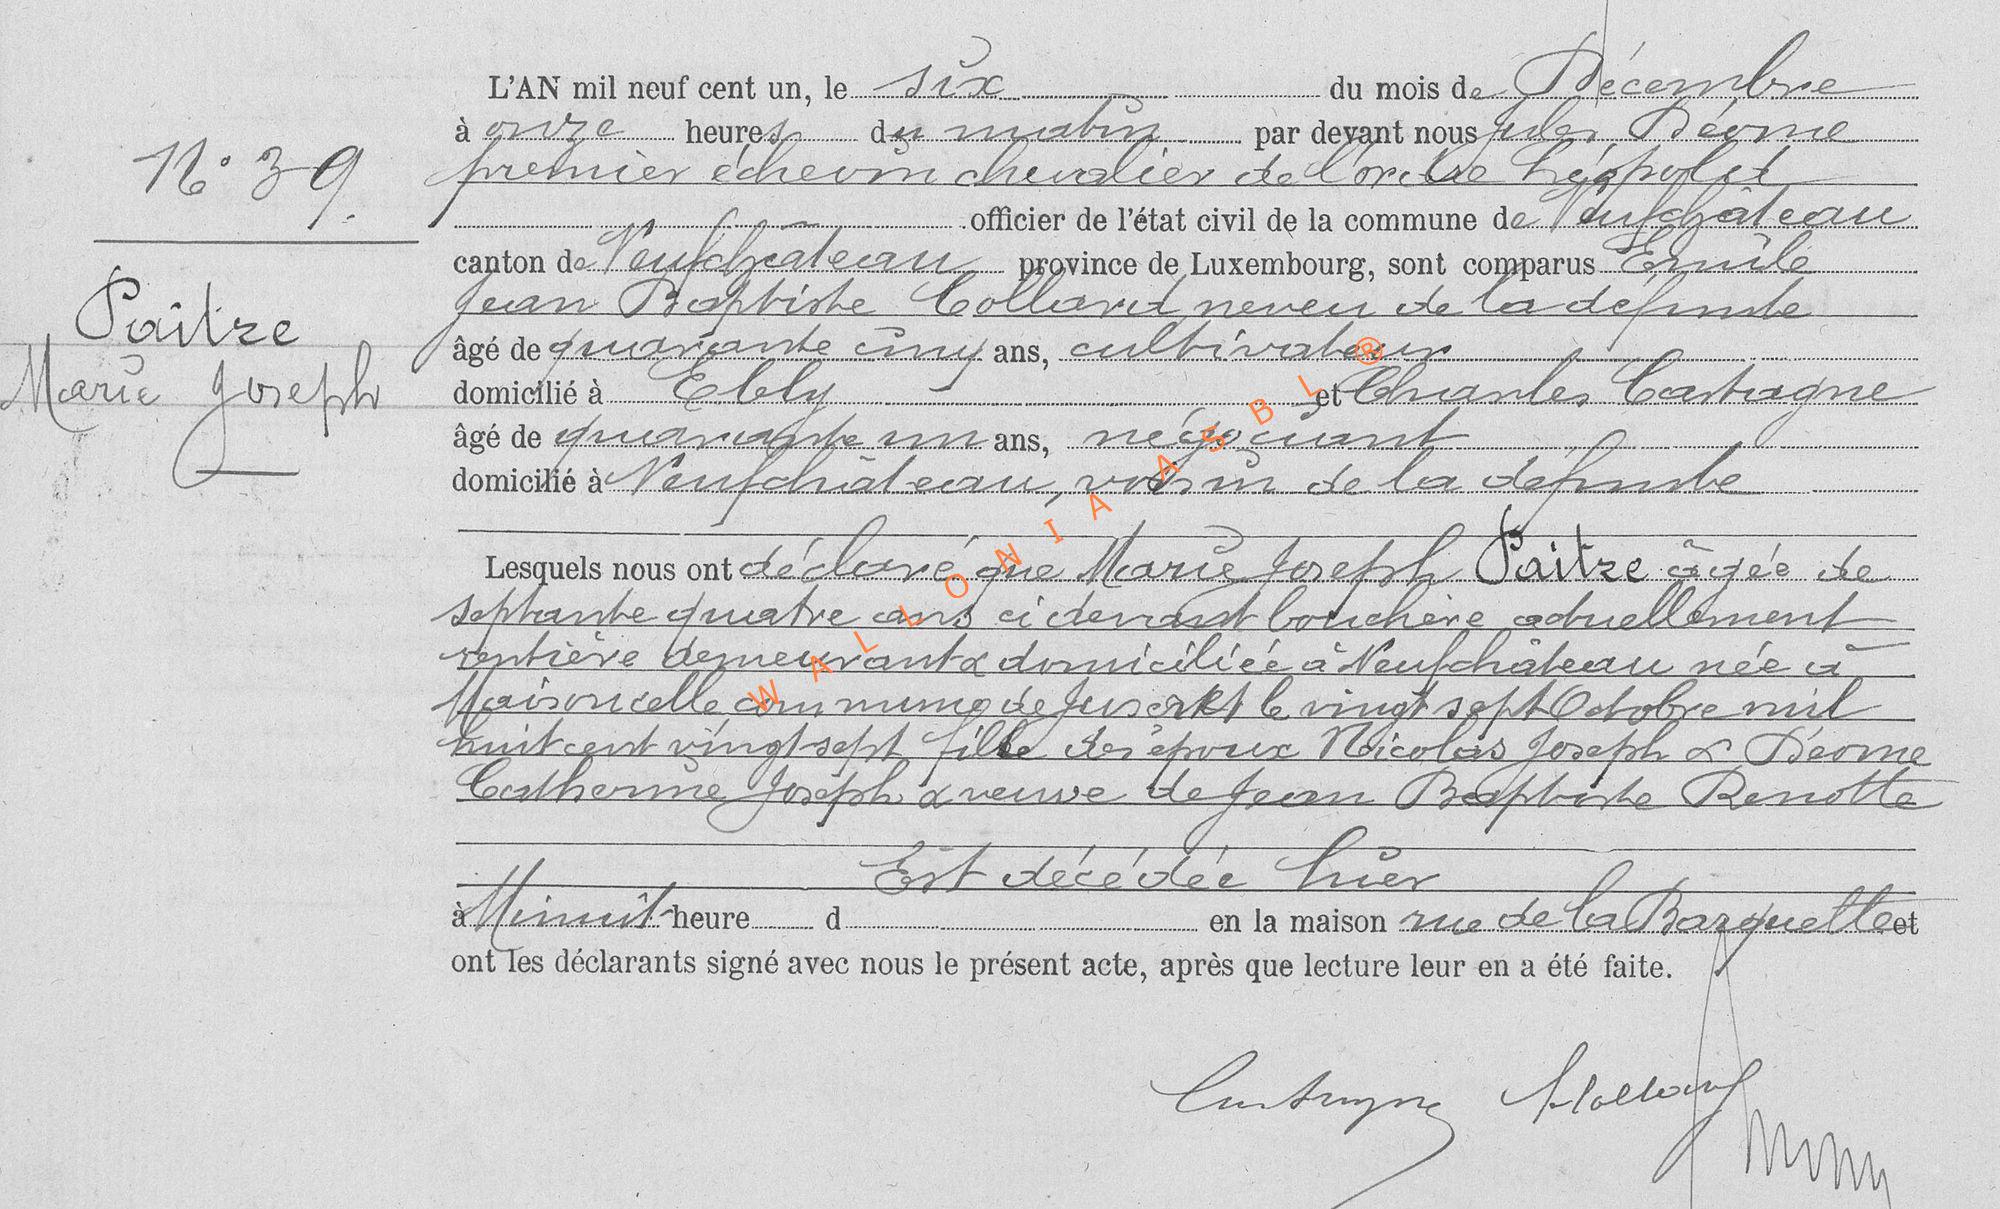 L'AN mil neuf cent un, le six du mois de Décembre
à onze heures du matin par devant nous Jules Déome
N° 39.
premier échevin chevalier de l'ordre Léopold
officier de l'état civil de la commune de Neufchâteau
canton de Neufchâteau province de Luxembourg, sont comparus Emile
Jean Baptiste Collard, neveu de la défunte
Paître
Marie Joseph
âgé de quarante cinq ans, cultivateur
domicilié à Ebly et Charles Castagne
âgé de quarante un ans, négociant
domicilié à Neufchâteau, voisin de la défunte
Lesquels nous ont déclaré que Marie Joseph Paître âgée de
septante quatre ans ci devant bouchère actuellement
rentière demeurant & domiciliée à Neufchâteau née à
Maisoncelle commune de Juseret le vingt sept Octobre mil
huit cent vingt-sept fille des époux Nicolas Joseph & Déome
Catherine Joseph & veuve de Jean Baptiste Renotte
Est décédée hier
à Minuit heure d en la maison rue de la Barquette et
ont les déclarants signé avec nous le présent acte, après que lecture leur en a été faite.
Castagne Collard
WALLONIA ASBL ®